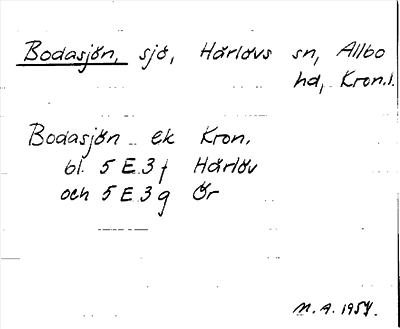 Bodasjön, sjö, Härlövs sn, Allbo
hd, Kron.l.
Bodasjön ek Kron.
bl. 5 E 3 f Härlöv
och 5 E 3 g Ör
M. A. 1957.